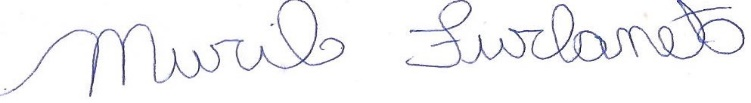 Murilo Furlaneto